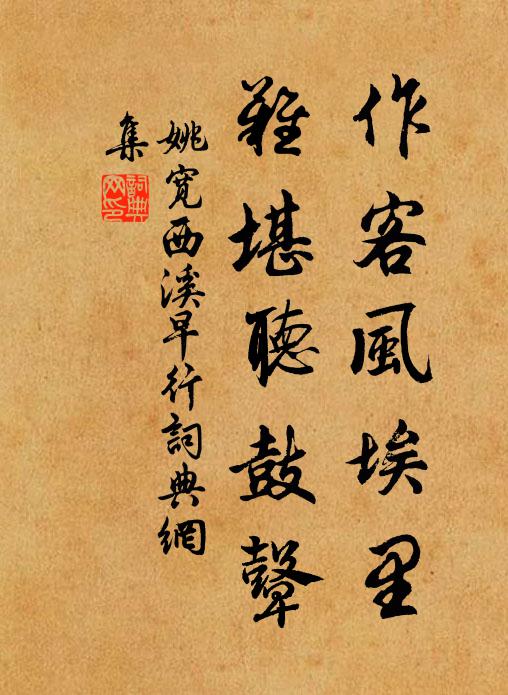 作客風埃里
難堪聽鼓聲
姚寬西溪早行詞典網
集
詞典
网印